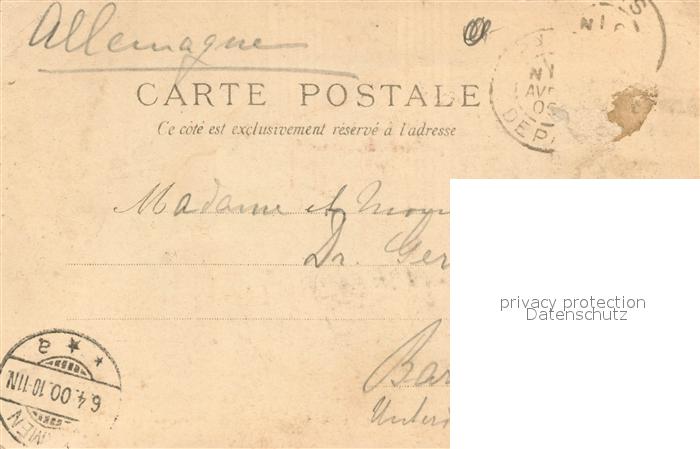 Allemagne
CARTE POSTALE
Ce côté est exclusivement réservé à l'adresse
AVR
DEP
Madame et
Dr. Ger
privacy protection
Datenschutz
Bar
6.4.00.10-11N
MEN